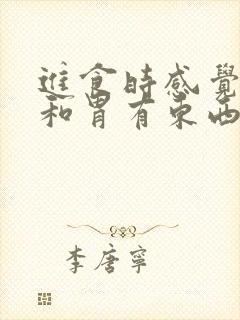 進食時感覺
和胃有東西
李唐寧